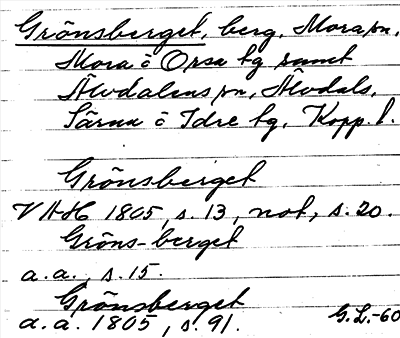 Grönsberget, berg, Mora sn,
Mora o Orsa tg samt
Älvdalens sn, Älvdals,
Särna o Idre tg, Kopp. l.
Grönsberget
VAH 1805, s. 13, not, s. 20.
Gröns-berget
a.a., s. 15.
Grönsberget
a.a. 1805, s. 91.
G.L.-60